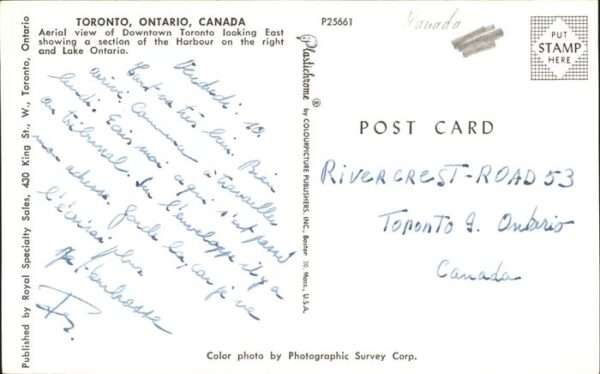 TORONTO, ONTARIO, CANADA
Aerial view of Downtown Toronto looking East
showing a section of the Harbour on the right
and Lake Ontario.
P25661
Kanada
PUT
STAMP
HERE
Published by Royal Specialty Sales, 430 King St., W., Toronto, Ontario
Plastichrome ® by COLOURPICTURE PUBLISHERS, INC., Boston 30, Mass., U.S.A.
POST CARD
Vendredi. 10.
Tout va très bien. Bien
arrivé. Commence à travailler
lundi. Écris moi à qui t'as passé
au tribunal. Sur l'enveloppe il y a
mon adresse. Garde la, car je ne
l'écrirai plus
Je t'embrasse
RIVERCREST-ROAD 53
Toronto 9. Ontario
Canada
Color photo by Photographic Survey Corp.